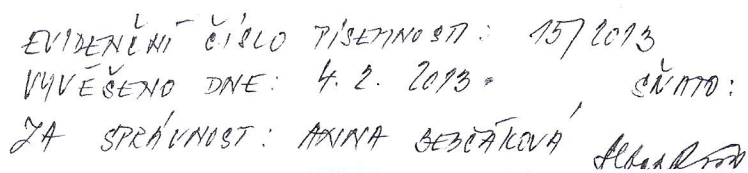 EVIDENČNÍ ČÍSLO PÍSEMNOSTI: 15/2013
VYVĚŠENO DNE: 4. 2. 2013. SŇATO:
ZA SPRÁVNOST: ANNA